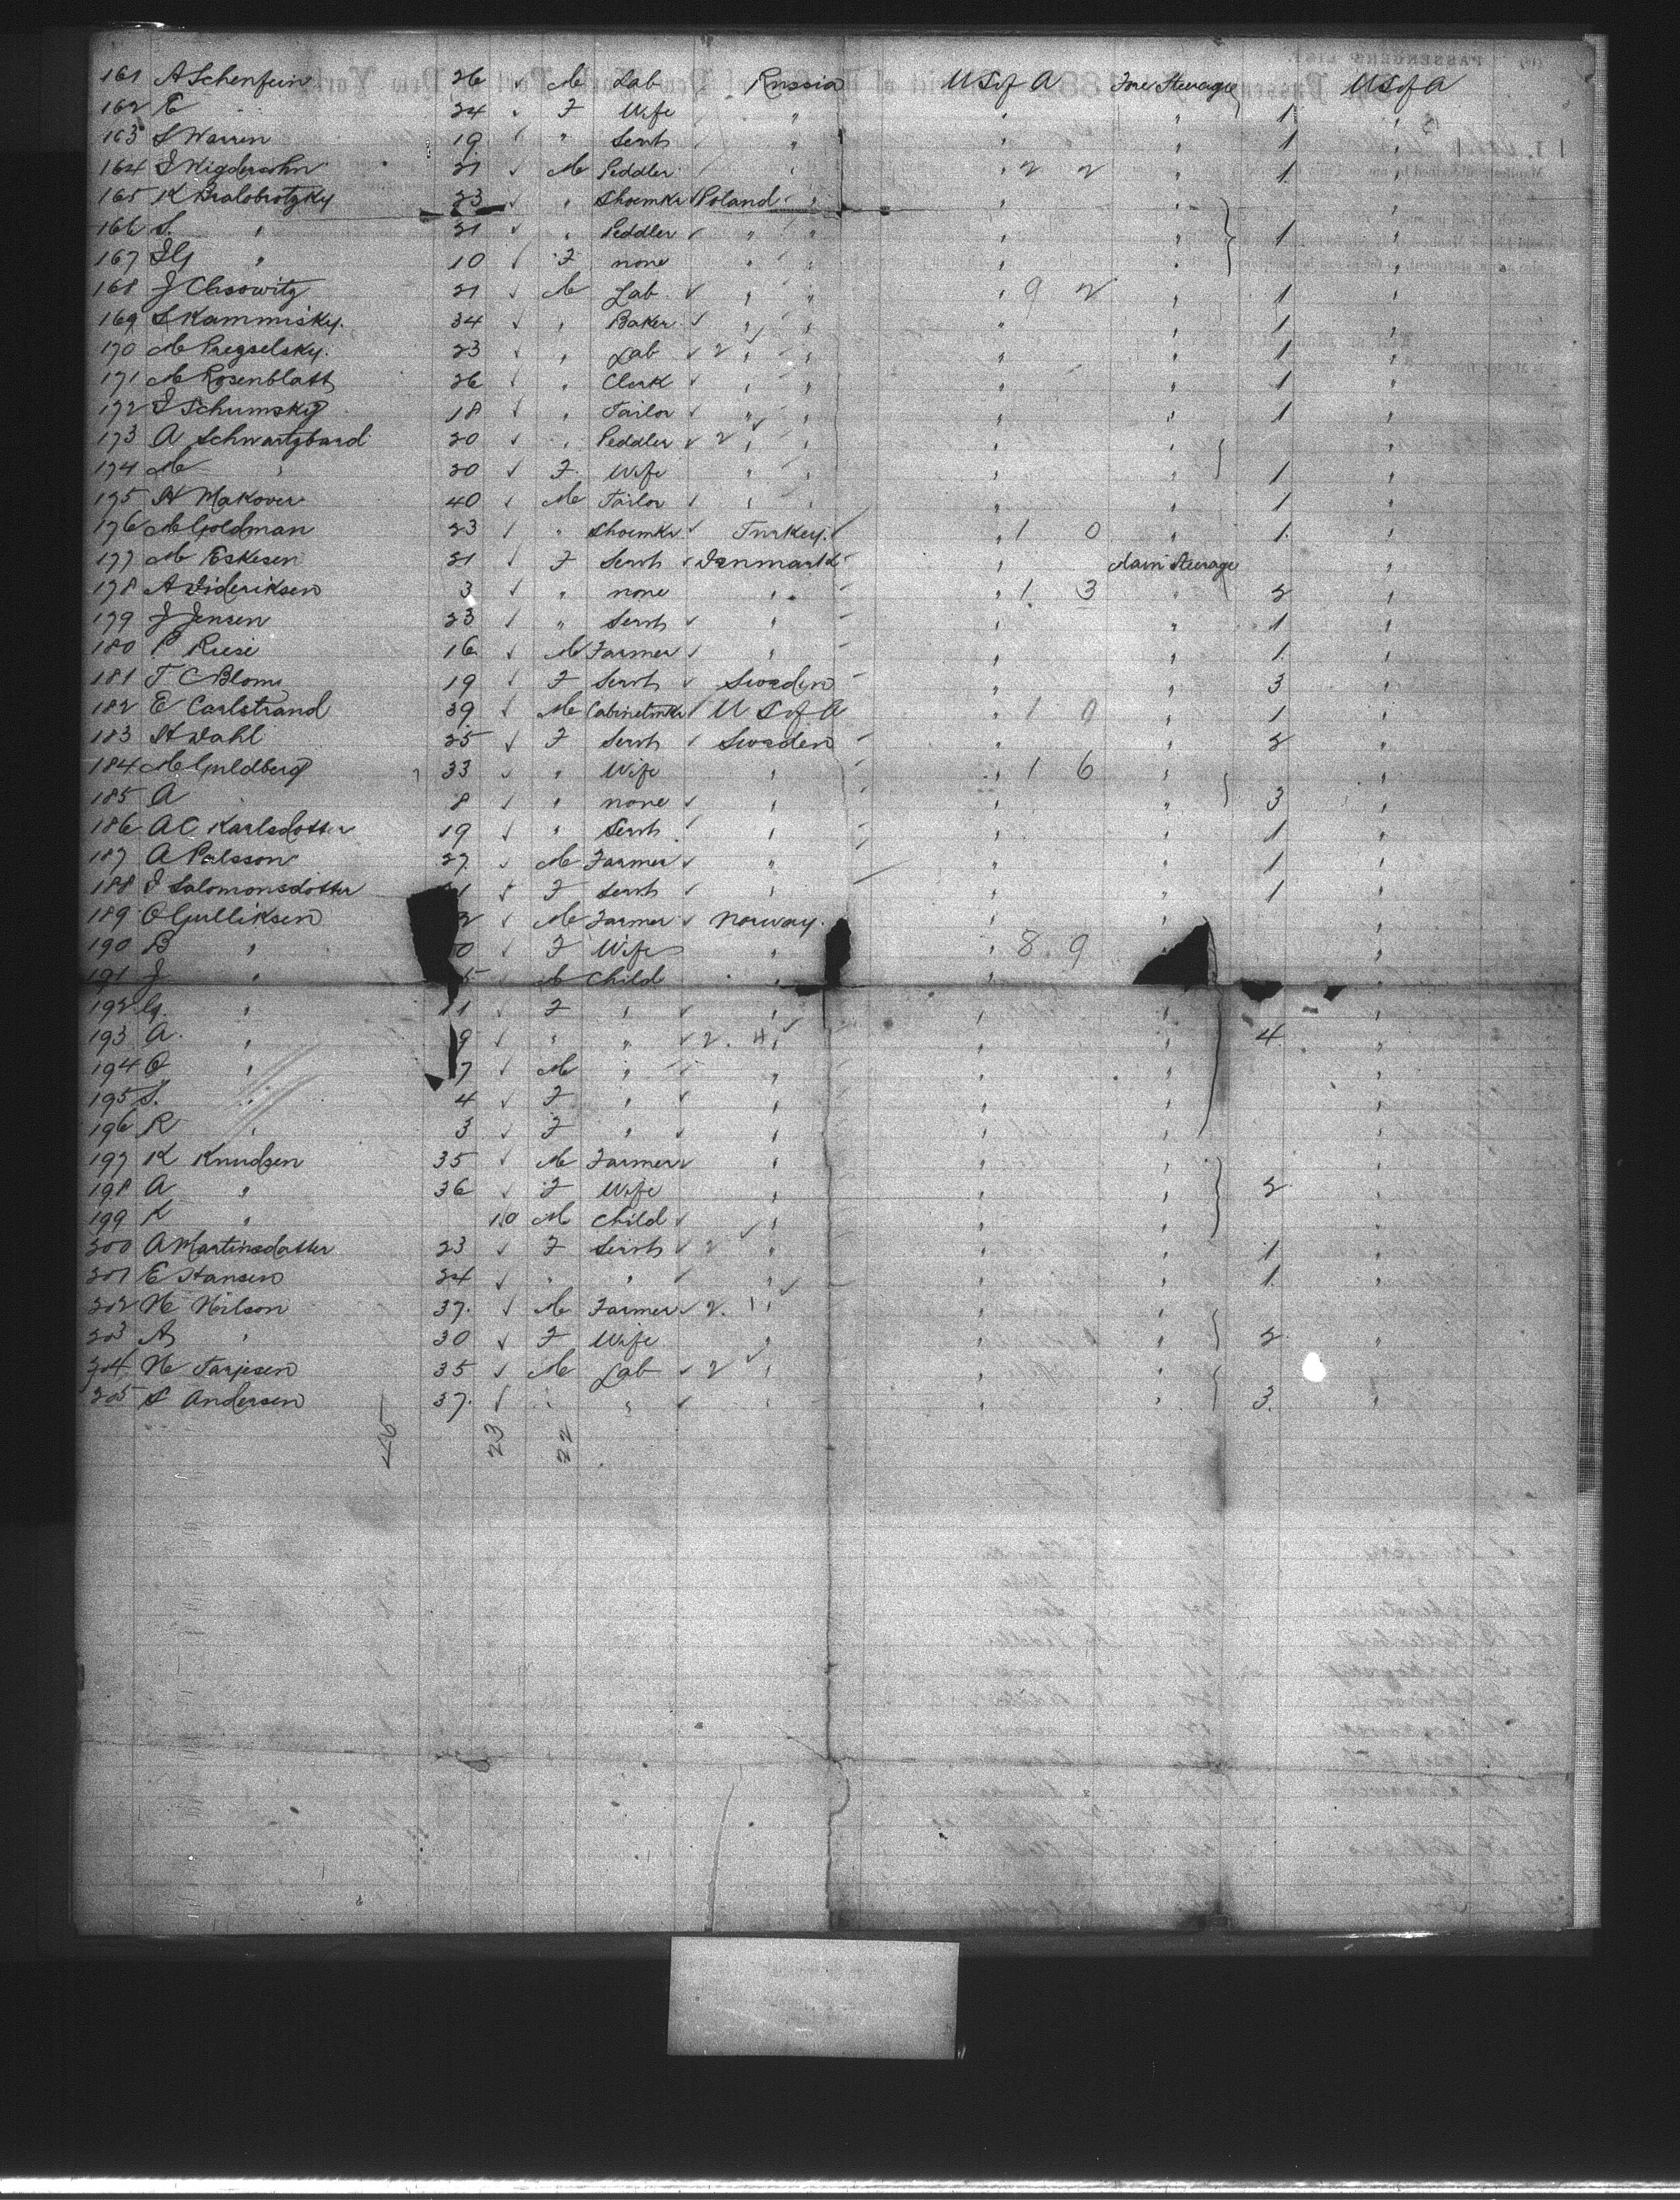 161 A Schenfein 26 M Lab Russia U S of A Fore Steerage U S of A
162 E " 24 F Wife " " " 1 "
163 S Warren 19 " Servt " " " 1 "
164 I Wigdersohn 21 M Peddler " " 2 2 " 1 "
165 K Bialobrotzky 23 " Shoemkr Poland " " " "
166 S. " 21 " Peddler " " " " 1 "
167 " 10 F none " " " " "
168 J 21 M Lab " " " 9 2 " 1 "
169 S Kammisky. 34 " Baker " " " " 1 "
170 M Pregselsky. 23 " Lab 2 " " " " 1 "
171 M Rosenblatt 26 " Clerk " " " " 1 "
172 I Schumsky 18 " Tailor " " " " 1 "
173 A Schwartzbard 20 " Peddler 2 " " " " "
174 M " 20 F Wife " " " " 1 "
175 H Makover 40 M Tailor " " " " 1 "
176 M Goldman 23 " Shoemkr Turkey. " 1 0 " 1 "
177 M Eskesen 21 F Servt Denmark " Main Steerage "
178 A Dideriksen 3 " none " " 1 3 " 2 "
179 J Jensen 23 " Servt " " " 1 "
180 P Riese 16 M Farmer " " " 1 "
181 T C Blom 19 F Servt Sweden " " 3 "
182 E Carlstrand 39 M Cabinetmkr U S of A " 1 0 " 1 "
183 H Dahl 25 F Servt Sweden " " 2 "
184 M Guldberg 33 " Wife " " 1 6 " "
185 A " 8 " none " " " 3 "
186 A C Karlsdotter 19 " Servt " " " 1 "
187 A Palsson 27 M Farmer " " " 1 "
188 I Salomonsdotter 1 F Servt " " " 1 "
189 O Gulliksen 2 M Farmer Norway. " "
190 B " 0 F Wife " " 8 9 "
191 J " 5 M Child " " "
192 G. " 11 F " " " " "
193 A. " 9 " " 2. " " " 4 "
194 O " 7 M " " " " "
195 S. " 4 F " " " " "
196 R " 3 F " " " " "
197 K Knudsen 35 M Farmer " " " "
198 A " 36 F Wife " " " 2 "
199 K " 10 M Child " " " "
200 A Martinsdatter 23 F Servt 2 " " " 1 "
201 E Hansen 24 " " " " " 1 "
202 N Nilson 37. M Farmer 2. " " " "
203 A " 30 F Wife " " " 2 "
204 N Tarjesen 35 M Lab 2 " " " "
205 S Andersen 37. " " " " " 3. "
23
22